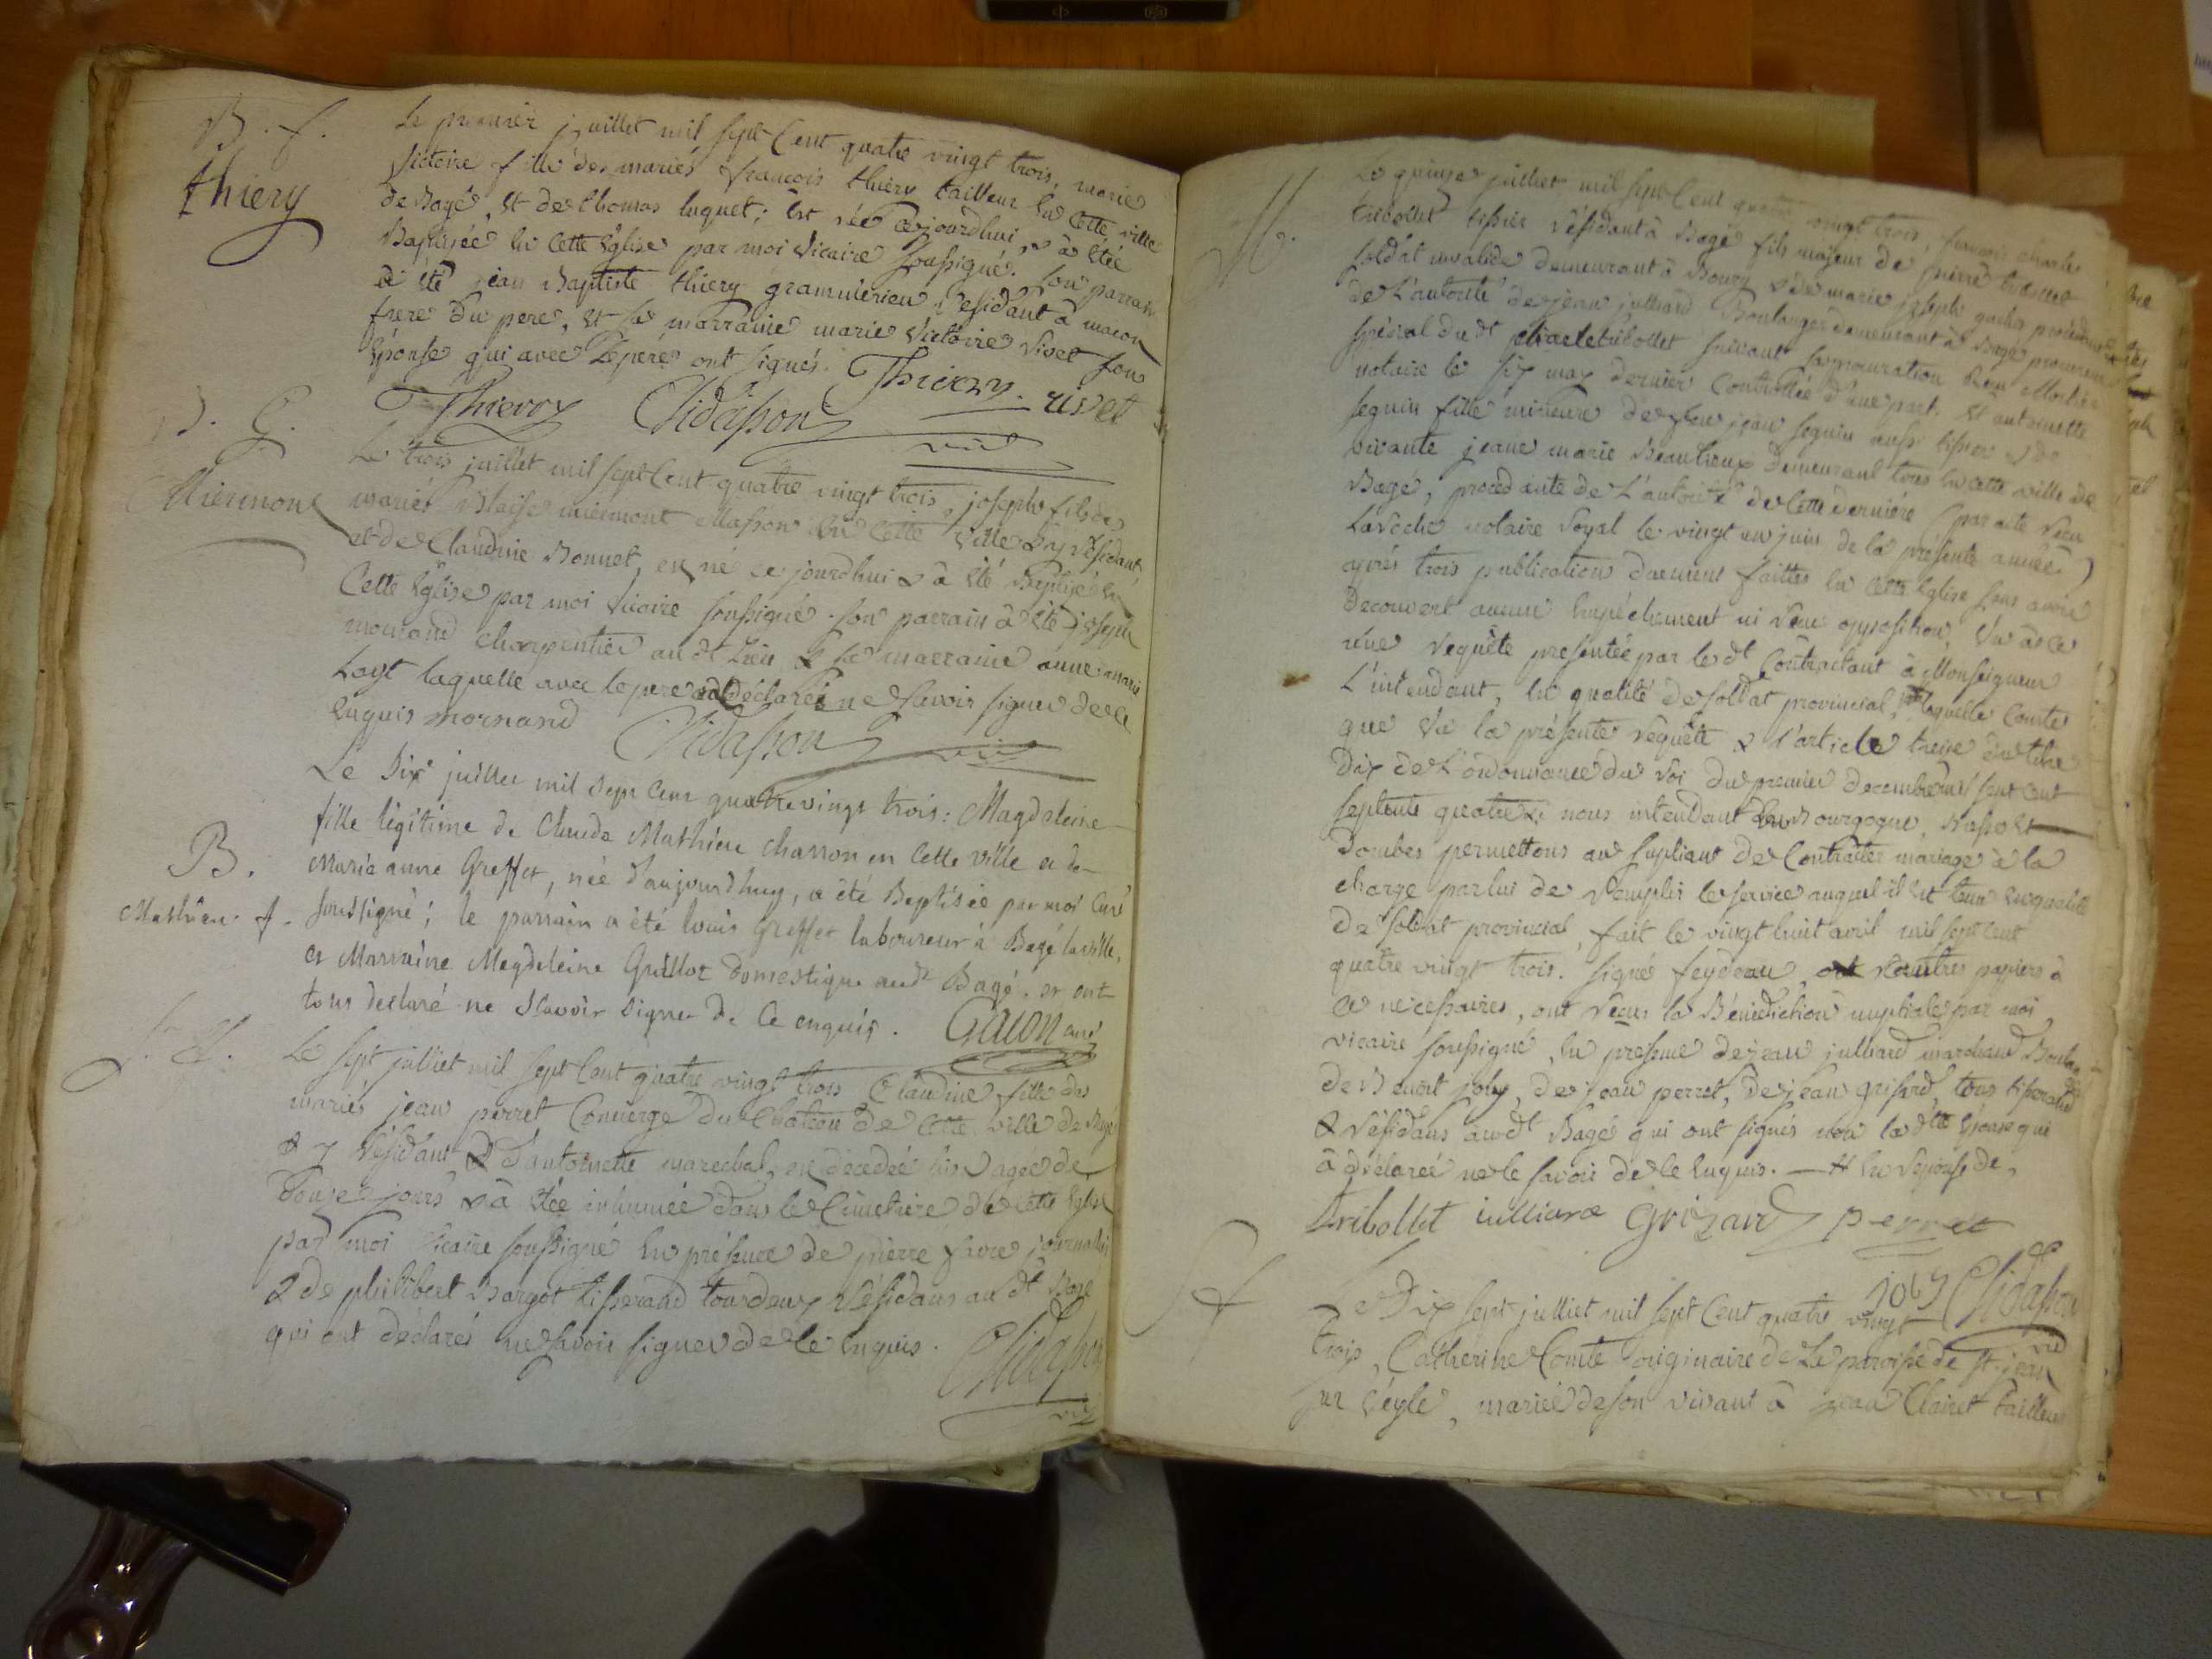 B. f.
thiery
Le premier juillet mil sept Cent quatre vingt trois, marie
victoire fille des mariés françois thiery tailleur en cette ville
de Bagé, et de thomas luquet; est née cejourdhui & à étée
Baptisée en cette Eglise par moi vicaire soussigné. son parrain
à été jean Baptiste thiery grammérien résidant à macon
frere du pere, et sa marraine marie victoire rivet son
Epouse qui avec le pere ont signés. Thierry. rivet
Thierry Chidasson
vic
B. G.
Miermont
Le trois juillet mil sept Cent quatre vingt trois, joseph fils des
mariés Blaise miermont Masson en cette ville & y résidant
et de Claudine Bonnet, est né ce jourdhui & à été Baptisé en
Cette Eglise par moi vicaire soussigné. son parrain à été joseph
mornand charpentier au dt lieu & sa marraine anne marie
layt laquelle avec le pere déclaré ne savoir signer de ce
Enquis mornand Chidasson
vic
B.
Mathieu. f.
Le Six juillet mil Sept Cent quatre vingt trois: Magdeleine
fille légitime de Claude Mathieu charron en Cette ville et de
Marie anne Greffet, née d'aujourdhuy, a été Baptisée par moi Curé
soussigné; le parrain a été louis Greffet laboureur à Bagé la ville,
et Marraine Magdeleine Guillot domestique audt Bagé. et ont
tous declaré ne Scavoir Signer de Ce enquis. Gacon curé
S. f.
Le sept julliet mil sept Cent quatre vingt trois Claudine fille des
mariés jean perret Concierge du Chateau de cette ville de Bagé
& y résidant & d'antoinette marechal, est decedée hier agée de
douze jours & à étée inhumée dans le Cimetiere de cette Eglise
par moi vicaire soussigné en présence de pierre favre journalier
& de philibert Bargot tisserand tous deux résidans au dt Bagé
qui ont déclarés ne savoir signer de ce enquis.
Chidasson
vic
M.
Le quinze julliet mil sept Cent quatre vingt trois, françois charles
tribollet tissier résidant à Bagé fils majeur de pierre tribollet
soldat invalide demeurant à Bourg & de marie joseph procédant
de l'autorité de jean julliard Boulanger demeurant à Bagé procureur
spécial du dt tribollet suivant sa procuration reçu
notaire le six may dernier Controllée d'une part. Et antoinette
seguin fille mineure de feu jean seguin aussi tissier & de
vivante jeanne marie Beaulieux demeurant tous en cette ville de
Bagé, procedante de L'autorité de cette derniere (par acte reçu
Laroche notaire Royal le vingt un juin de la présente année)
après trois publications duement faittes en cette Eglise sans avoir
decouvert aucun Empêchement ni reçu opposition, Vu
requête presentée par le dt Contractant à Monseigneur
L'intendant, en qualité de soldat provincial, laquelle Conste
que vu la présente requête & l'article treize du titre
dix de l'ordonnance du roi du premier decembre mil sept cent
septente quatre: nous intendant en Bourgogne, Bresse et
dombes permettons au supliant de Contracter mariage à la
charge par lui de remplir le service auquel il est tenu en qualité
de soldat provincial, fait le vingt huit avril mil sept cent
quatre vingt trois. signé feydeau, & autres papiers à
ce necessaires, ont reçus la Bénédiction nuptiale par moi
vicaire soussigné, en presence de jean julliard marchand Boulanger
de Benoit joly, de jean perret, de jean grisard, tous tisserands
& résidans au dt Bagé qui ont signés non la dtte Epouse qui
à déclarée ne le savoir de ce Enquis. — # en reponse de,
tribollet iulliard Grizard perret
joly Chidasson
vic
S f
Le Dix sept julliet mil sept Cent quatre vingt
trois, Catherine Comte originaire de la paroisse de st. jean
sur Veyle, mariée de son vivant à jean Clairet tailleur